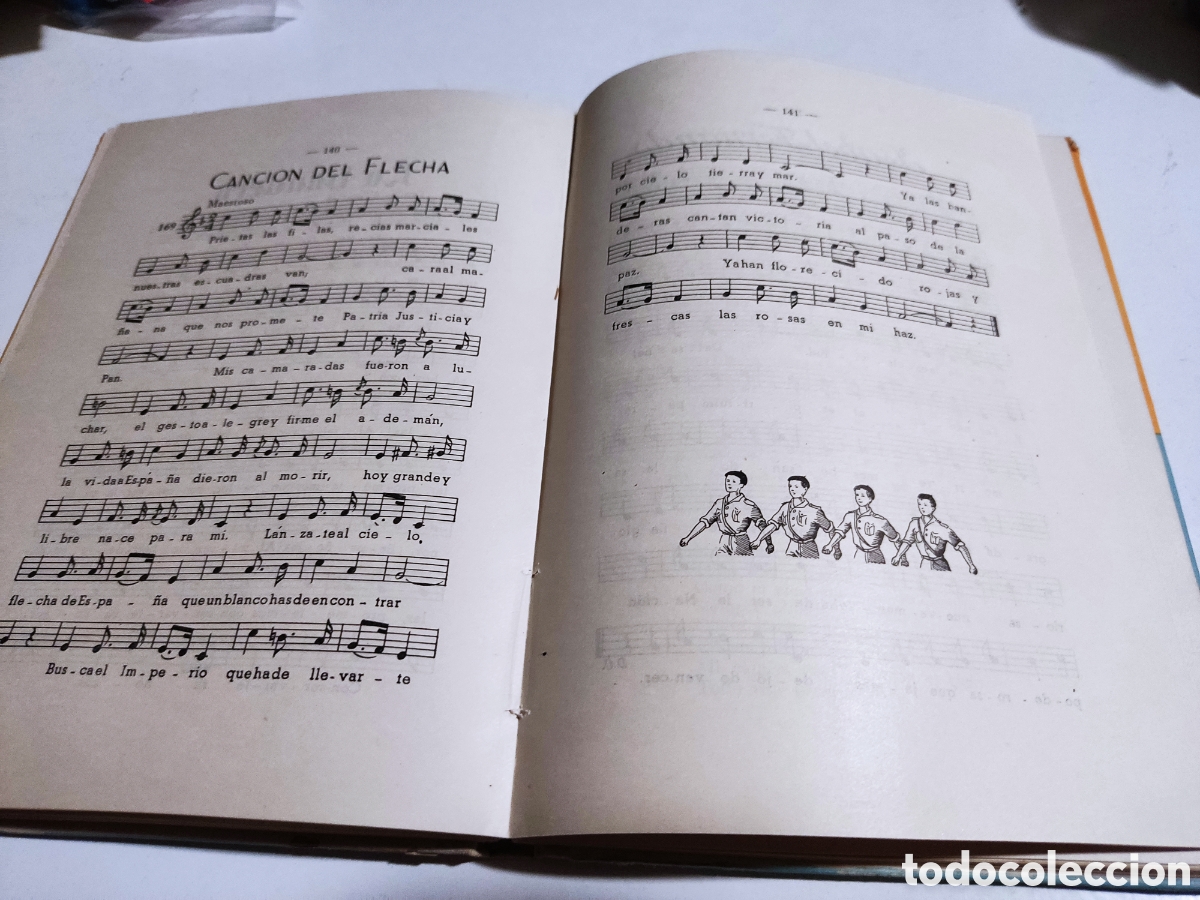 — 140 —
CANCION DEL FLECHA
Maestoso
169
Prie-tas las fi-las, re-cias mar-cia-les
nues-tras es-cua-dras van, ca-ra al ma-
ña-na que nos pro-me-te Pa-tria Jus-ti-cia y
Pan. Mis ca-ma-ra-das fue-ron a lu-
char, el ges-to a-le-gre y firme el a-de-mán,
la vi-da a Es-pa-ña die-ron al mo-rir, hoy grande y
li-bre na-ce pa-ra mi. Lán-za-te al cie-lo,
fle-cha de Es-pa-ña que un blanco has de en con-trar
Bus-ca el Im-pe-rio que ha de lle-var-te
— 141 —
por cie-lo tie-rra y mar. Ya las ban-
de-ras can-tan vic-to-ria al pa-so de la
paz. Ya han flo-re-ci-do ro-jas y
fres-cas las ro-sas en mi haz.
todocoleccion